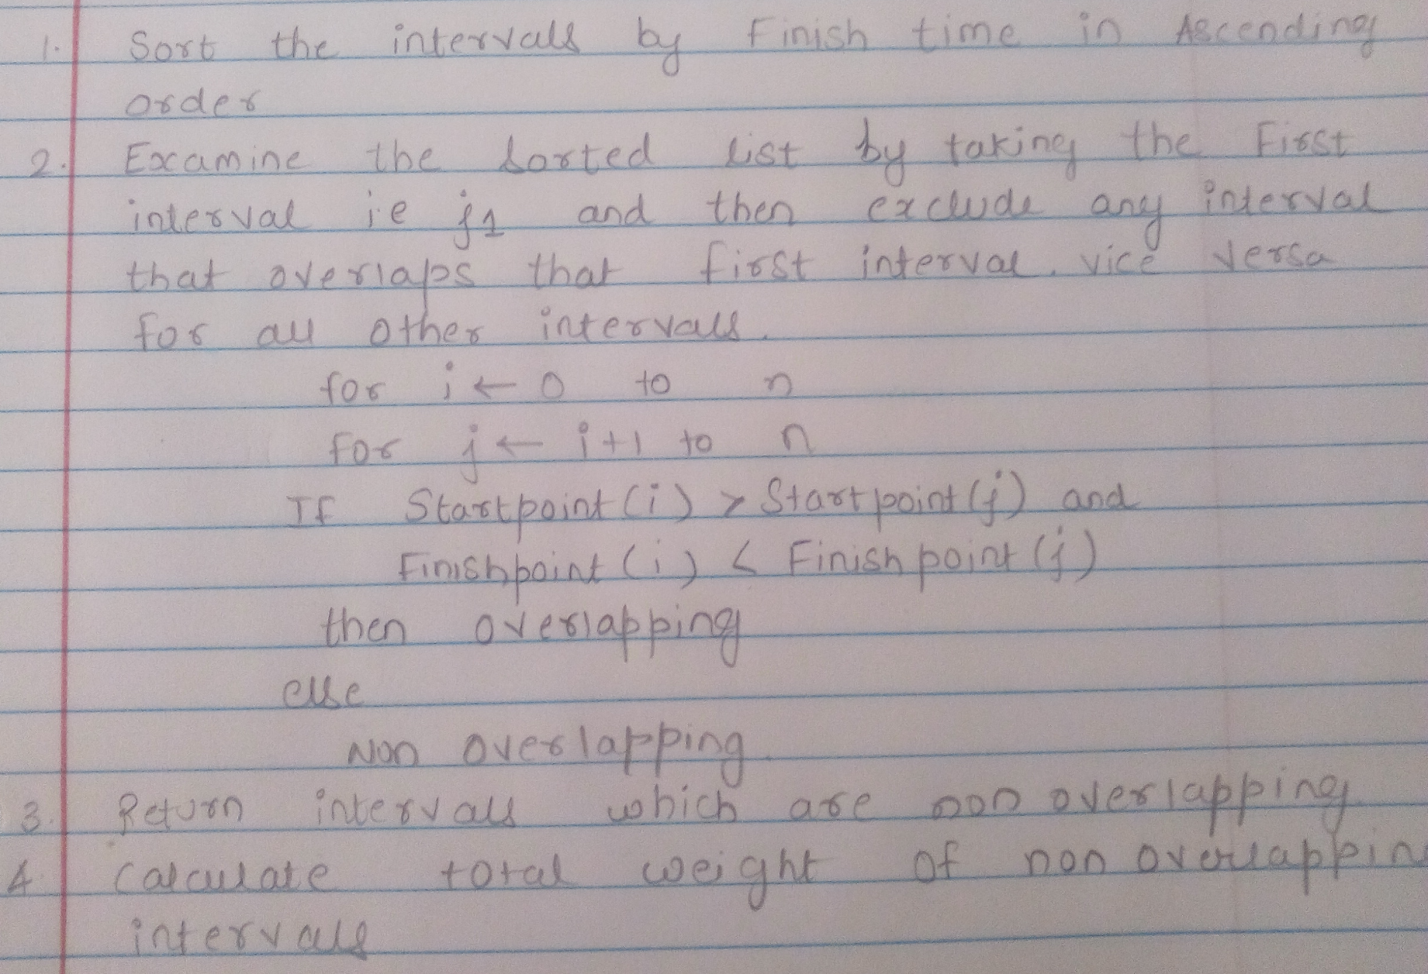 1. Sort the intervals by Finish time in Ascending
order
2. Examine the sorted list by taking the First
interval i.e j1 and then exclude any interval
that overlaps that first interval. vice versa
for all other intervals.
for i ← 0 to n
for j ← i+1 to n
If Startpoint (i) > Startpoint (j) and
Finishpoint (i) < Finishpoint (j)
then overlapping
else
Non overlapping
3. Return intervals which are non overlapping
4. calculate total weight of non overlappin
intervals